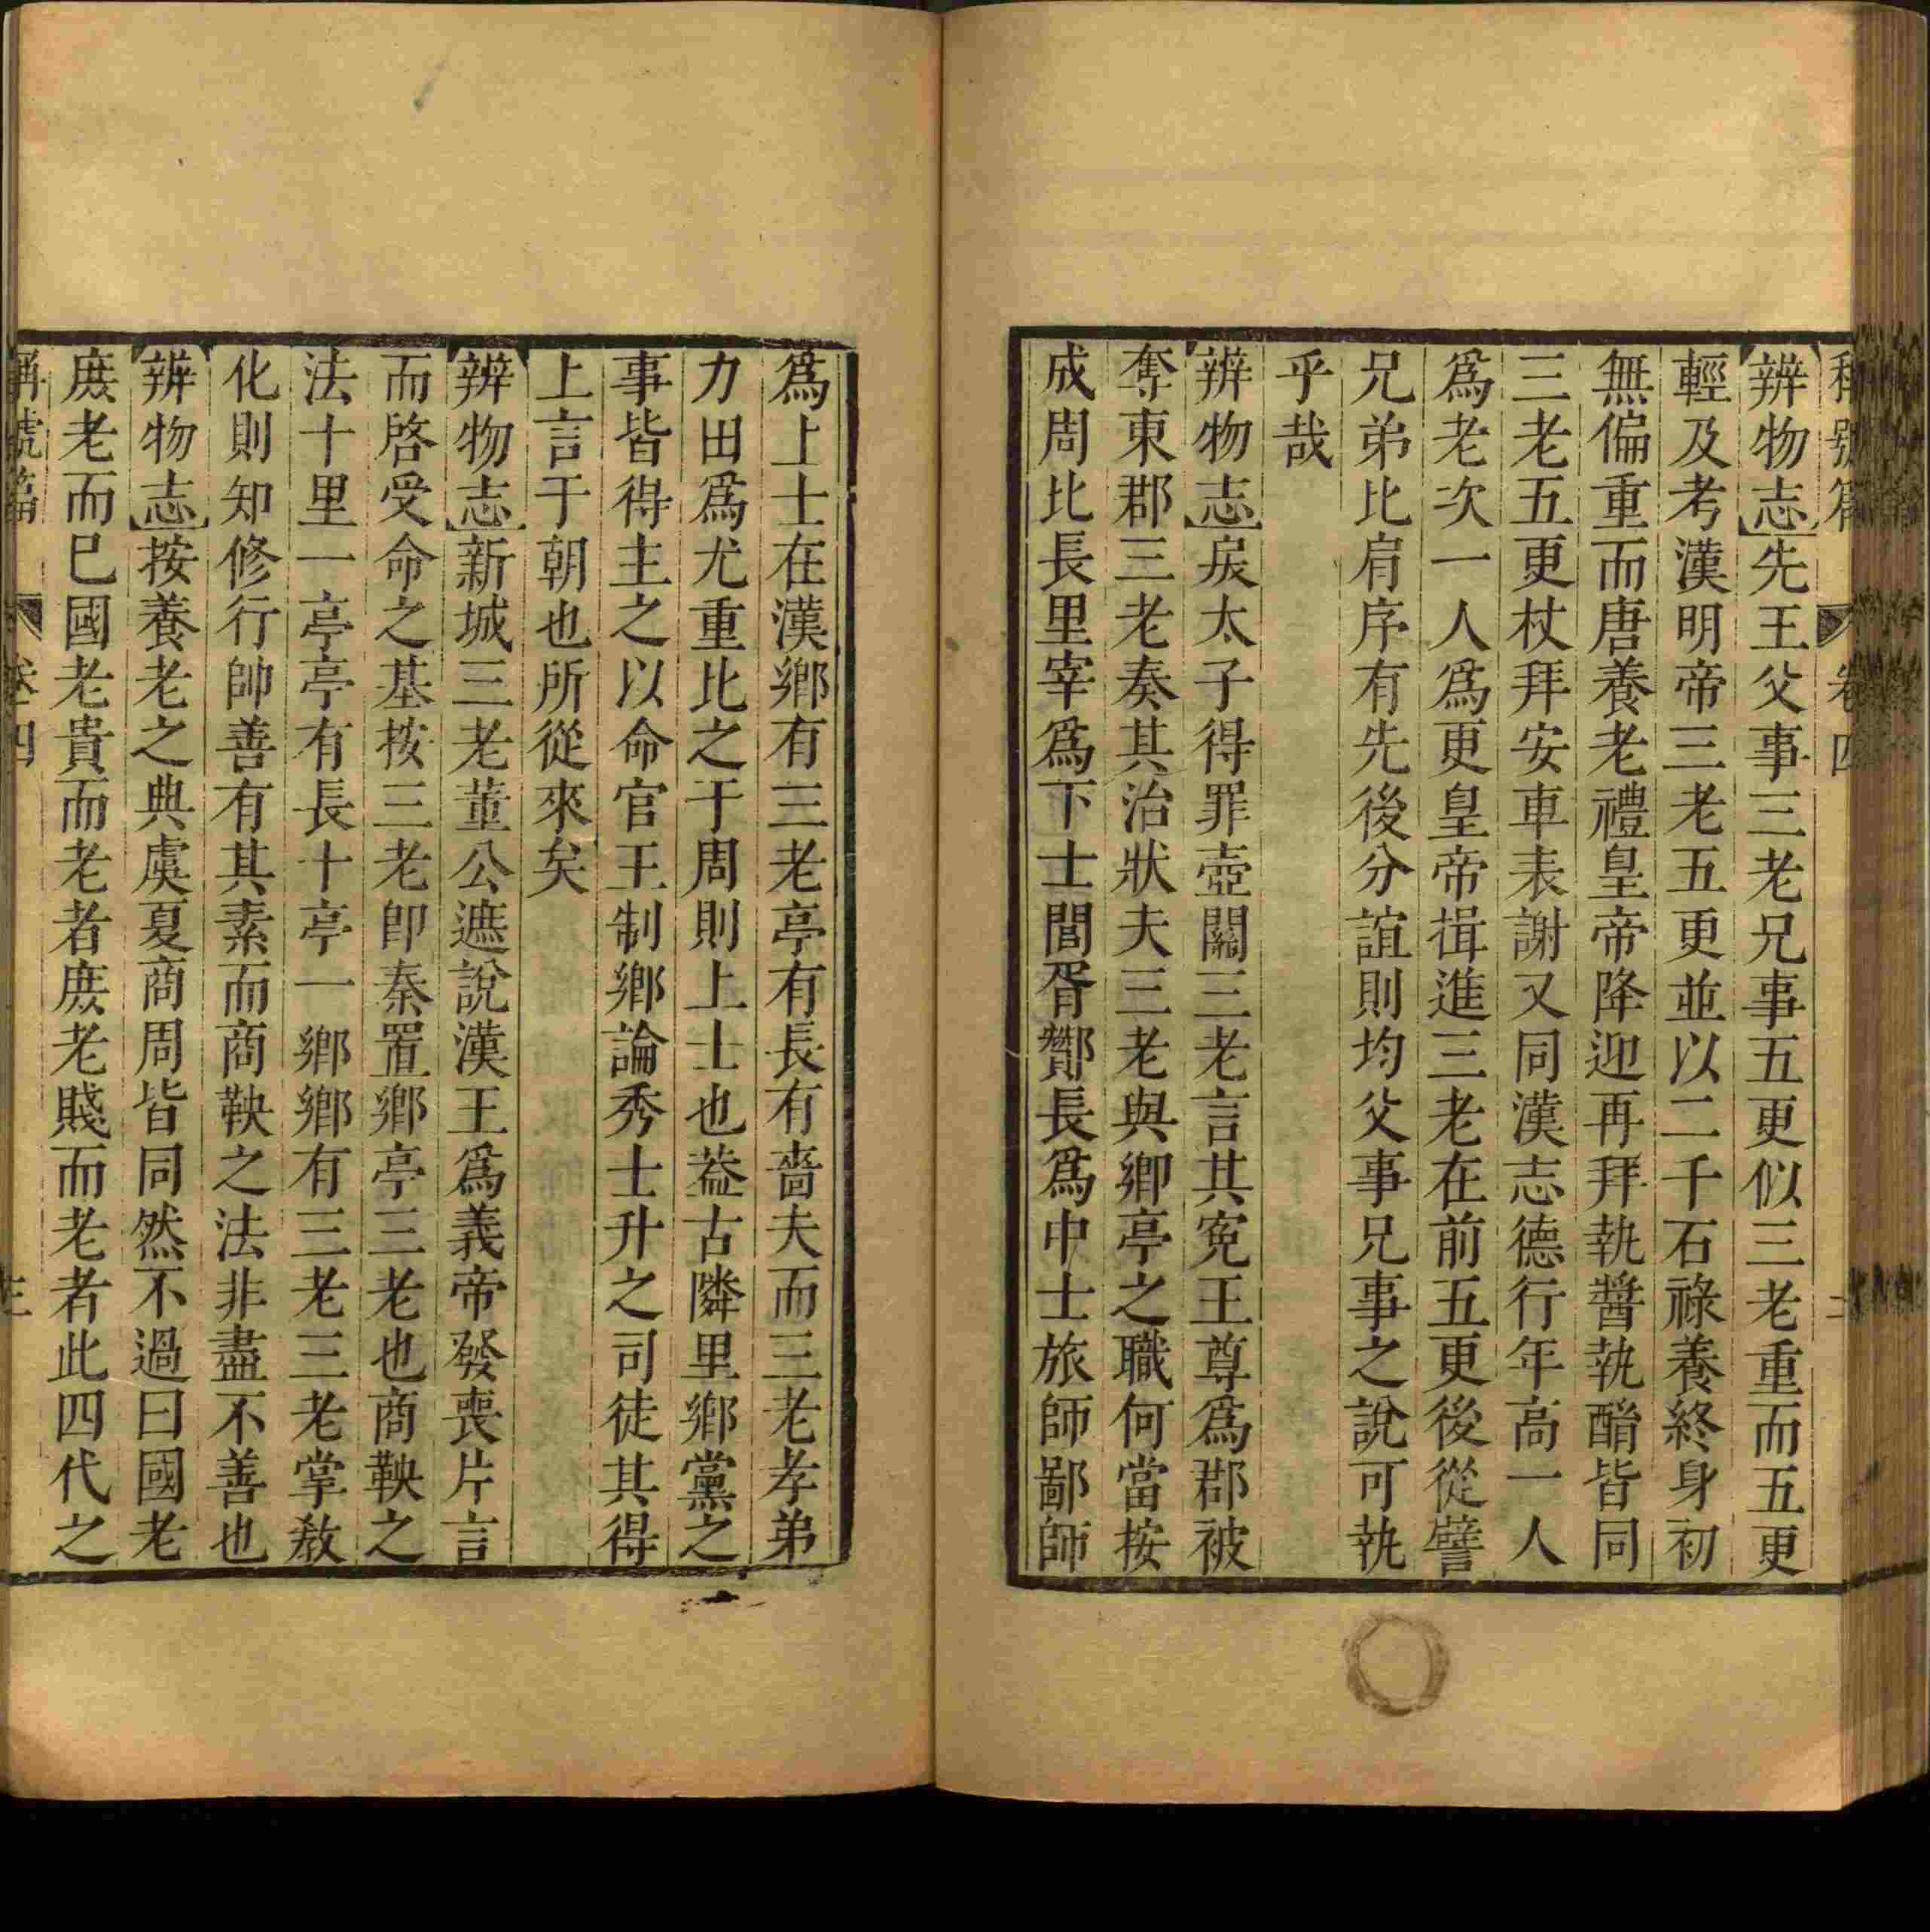 稱號篇 卷四 二
辨物志先王父事三老兄事五更似三老重而五更
輕及考漢明帝三老五更並以二千石祿養終身初
無偏重而唐養老禮皇帝降迎再拜執醬執酳皆同
三老五更杖拜安車表謝又同漢志德行年高一人
爲老次一人爲更皇帝揖進三老在前五更後從譬
兄弟比肩序有先後分誼則均父事兄事之說可執
乎哉
辨物志戾太子得罪壺關三老言其寃王尊爲郡被
奪東郡三老奏其治狀夫三老與鄉亭之職何當按
成周比長里宰爲下士閭胥酇長爲中士旅師鄙師
爲上士在漢鄉有三老亭有長有嗇夫而三老孝弟
力田爲尤重比之于周則上士也葢古隣里鄉黨之
事皆得主之以命官王制鄉論秀士升之司徒其得
上言于朝也所從來矣
辨物志新城三老董公遮說漢王爲義帝發喪片言
而啓受命之基按三老卽秦置鄉亭三老也商鞅之
法十里一亭亭有長十亭一鄉鄉有三老三老掌敎
化則知修行帥善有其素而商鞅之法非盡不善也
辨物志按養老之典虞夏商周皆同然不過曰國老
庶老而巳國老貴而老者庶老賤而老者此四代之
稱號篇 卷四 三